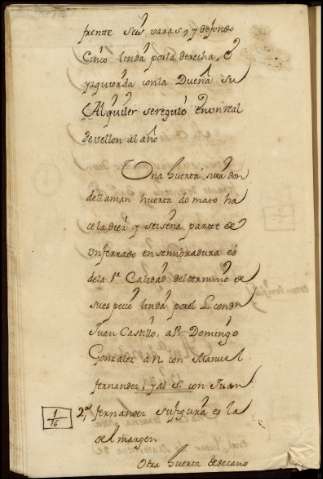 frente seis varas y de fondo
Cinco linda por la derecha, e
yzquierda con la Dueña su
Alquiler se reguló en un real
de vellon al año
Una huerta situada don
de llaman huerta do mato ha
ce la diez y seisena parte de
un ferrado en sembradura es
de la 1ª Calidad del termino de
su especie linda por el L. con Dn
Juan Castillo, a P. Domingo
Gonzalez a N. con Manuel
fernandez, y al S. con Juan
fernandez su figura es la
1/16
del margen
Otra huerta de decano